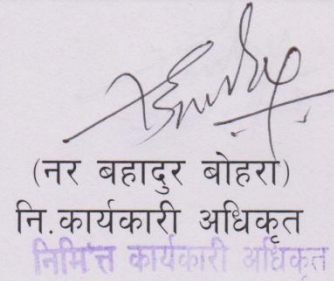 (नर बहादुर बोहरा)
नि.कार्यकारी अधिकृत
निमित्त कार्यकारी अधिकृत